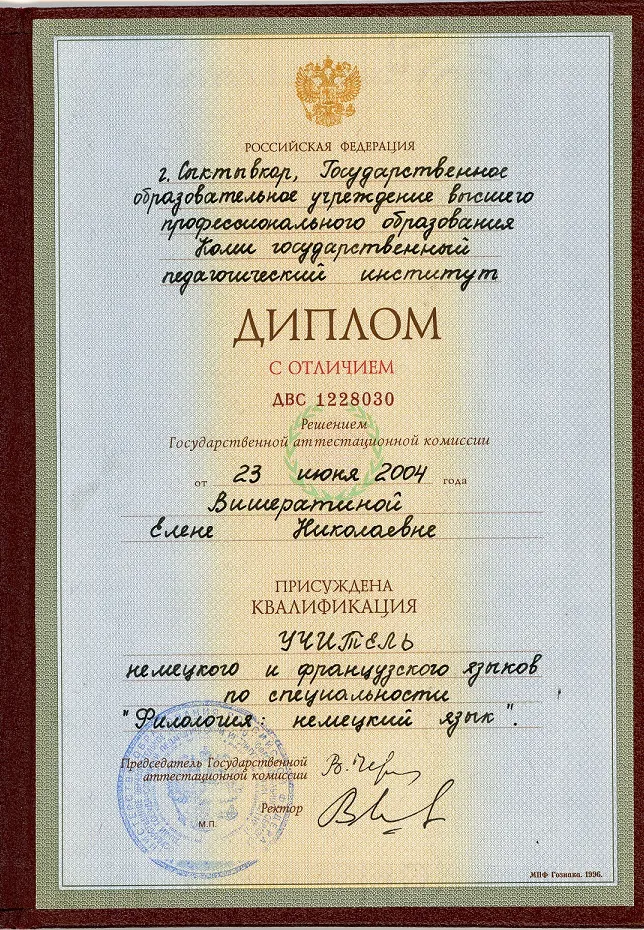 РОССИЙСКАЯ ФЕДЕРАЦИЯ
г. Сыктывкар, Государственное
образовательное учреждение высшего
профессионального образования
Коми государственный
педагогический институт
ДИПЛОМ
С ОТЛИЧИЕМ
ДВС 1228030
Решением
Государственной аттестационной комиссии
от 23 июня 2004 года
Вишератиной
Елене Николаевне
ПРИСУЖДЕНА
КВАЛИФИКАЦИЯ
УЧИТЕЛЬ
немецкого и французского языков
по специальности
"Филология: немецкий язык".
Председатель Государственной
аттестационной комиссии
Ректор
М.П.
МПФ Гознака. 1996.